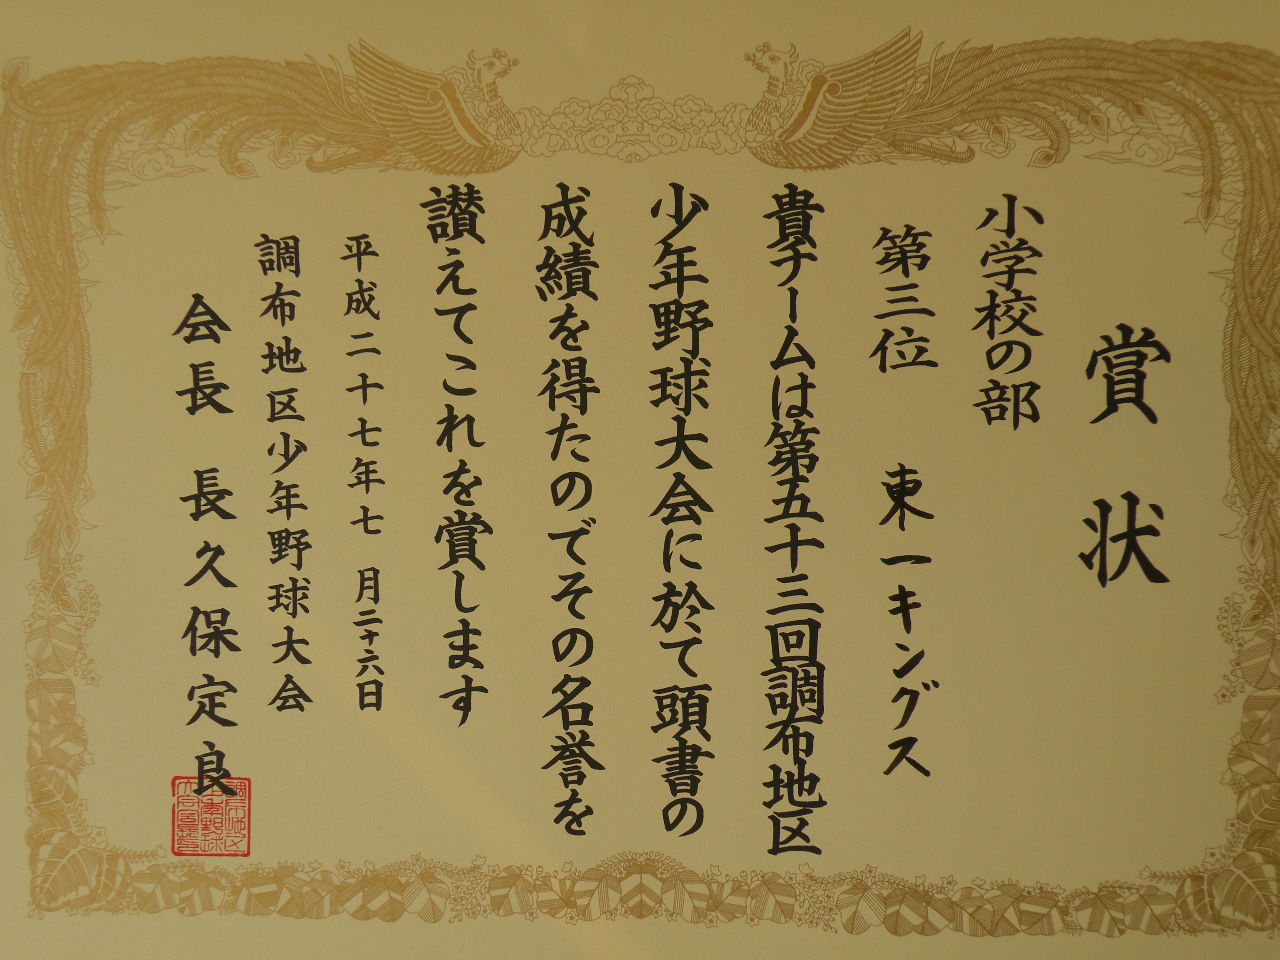 賞状
小学校の部
第三位 東一キングス
貴チームは第五十三回調布地区
少年野球大会に於て頭書の
成績を得たのでその名誉を
讃えてこれを賞します
平成二十七年七月二十六日
調布地区少年野球大会
会長 長久保定良